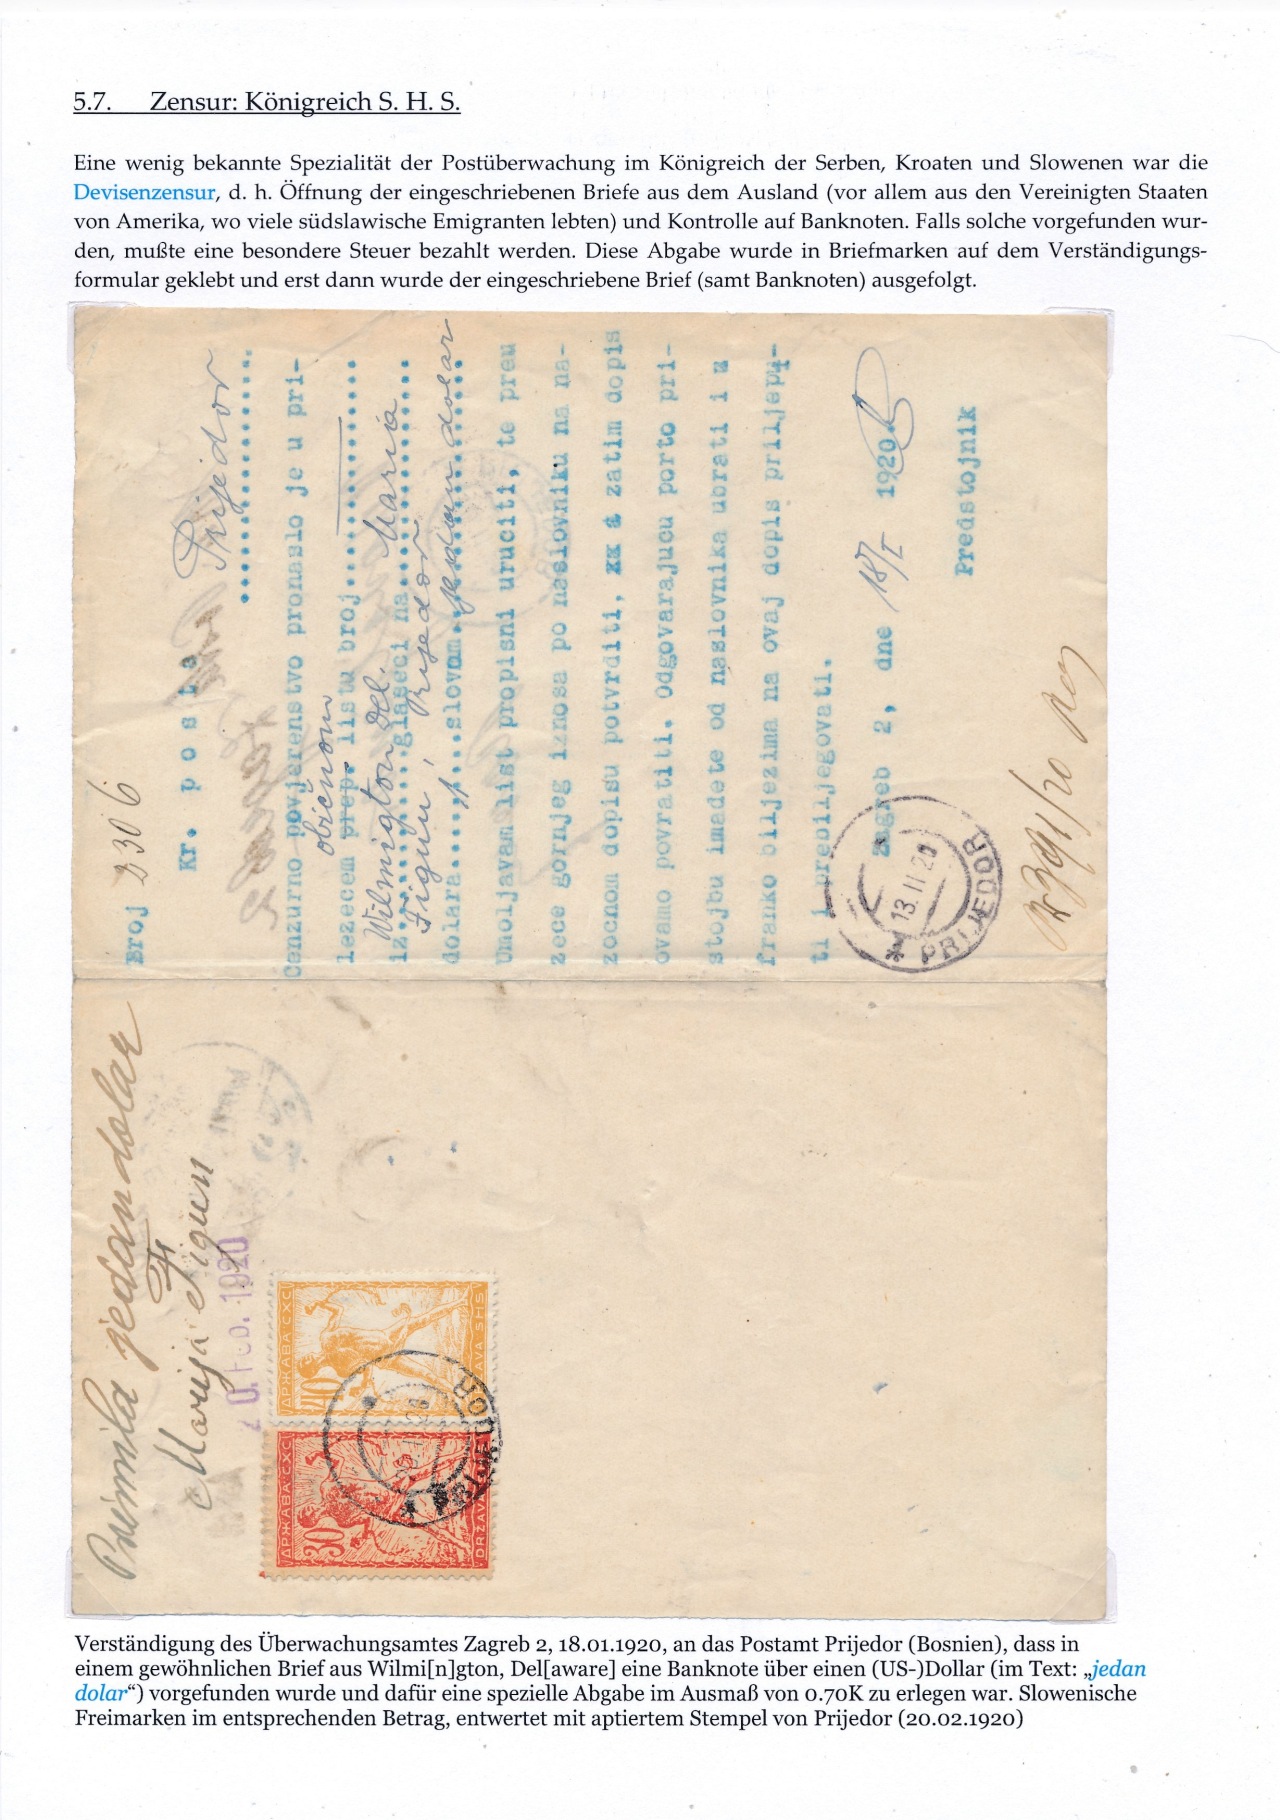 5.7. Zensur: Königreich S. H. S.
Eine wenig bekannte Spezialität der Postüberwachung im Königreich der Serben, Kroaten und Slowenen war die
Devisenzensur, d. h. Öffnung der eingeschriebenen Briefe aus dem Ausland (vor allem aus den Vereinigten Staaten
von Amerika, wo viele südslawische Emigranten lebten) und Kontrolle auf Banknoten. Falls solche vorgefunden wur-
den, mußte eine besondere Steuer bezahlt werden. Diese Abgabe wurde in Briefmarken auf dem Verständigungs-
formular geklebt und erst dann wurde der eingeschriebene Brief (samt Banknoten) ausgefolgt.
Broj 2306
Kr. posta Prijedor
Cenzurno povjerenstvo pronaslo je u pri-
običnom
lezecem priep. listu broj
Wilmigton Del. Maria
iz glaseci na
Figun, Prijedor
dolara 1 slovom jedan dolar
Umoljavam list propisni uruciti, te preu
zece gornjeg iznosa po naslovniku na na-
zocnom dopisu potvrditi, a zatim dopis
ovamo povratiti. Odgovarajucu porto pri-
stojbu imadete od naslovnika ubrati i u
franko biljezima na ovaj dopis priljepi-
ti i prebiljegovati.
Zagreb 2, dne 18/I 1920.
Predstojnik
13.II 20
* PRIJEDOR
Primila jedan dolar
Marija Figun
20. Feb. 1920
ДРЖАВА СХС
40
DRŽAVA SHS
ДРЖАВА СХС
30
DRŽAVA
* PRIJEDOR
Verständigung des Überwachungsamtes Zagreb 2, 18.01.1920, an das Postamt Prijedor (Bosnien), dass in
einem gewöhnlichen Brief aus Wilmi[n]gton, Del[aware] eine Banknote über einen (US-)Dollar (im Text: „jedan
dolar“) vorgefunden wurde und dafür eine spezielle Abgabe im Ausmaß von 0.70K zu erlegen war. Slowenische
Freimarken im entsprechenden Betrag, entwertet mit aptiertem Stempel von Prijedor (20.02.1920)